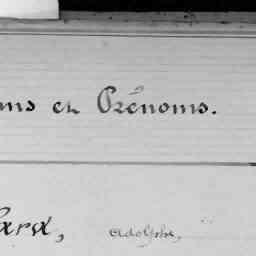 ms en Prénoms.
ard, Adolphe,